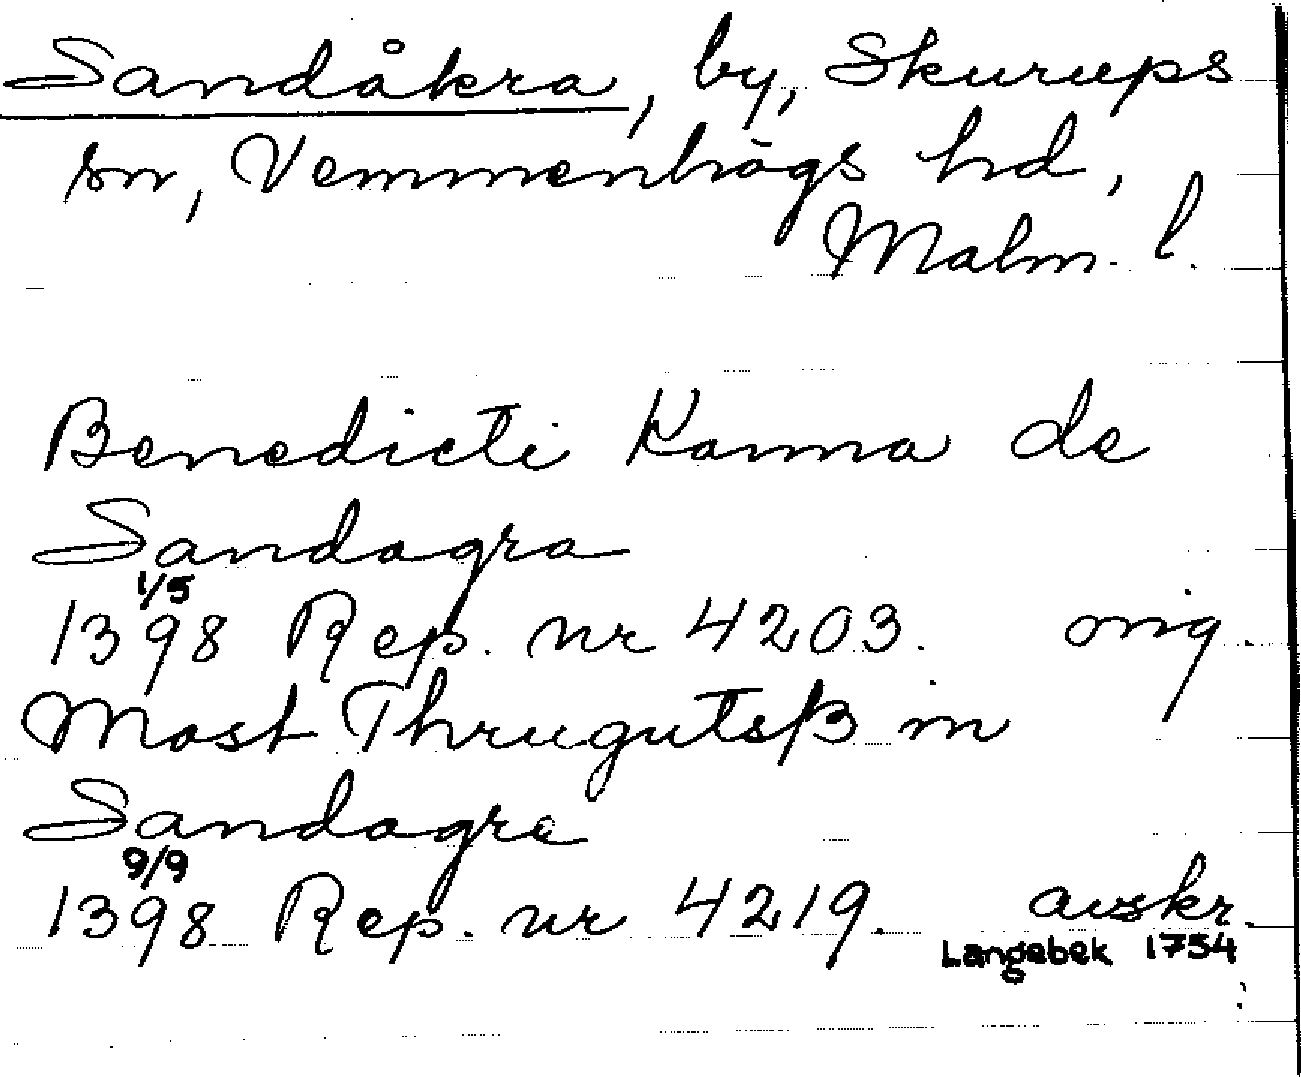 Sandåkra, by, Skurups
sn, Vemmenhögs hd,
Malm. l.
Benedicti Kanna de
Sandagra
1/5
1398 Rep. nr 4203. orig.
Mast Thrugutsß in
Sandagre
9/9
1398 Rep. nr 4219. avskr.
Langebek 1754